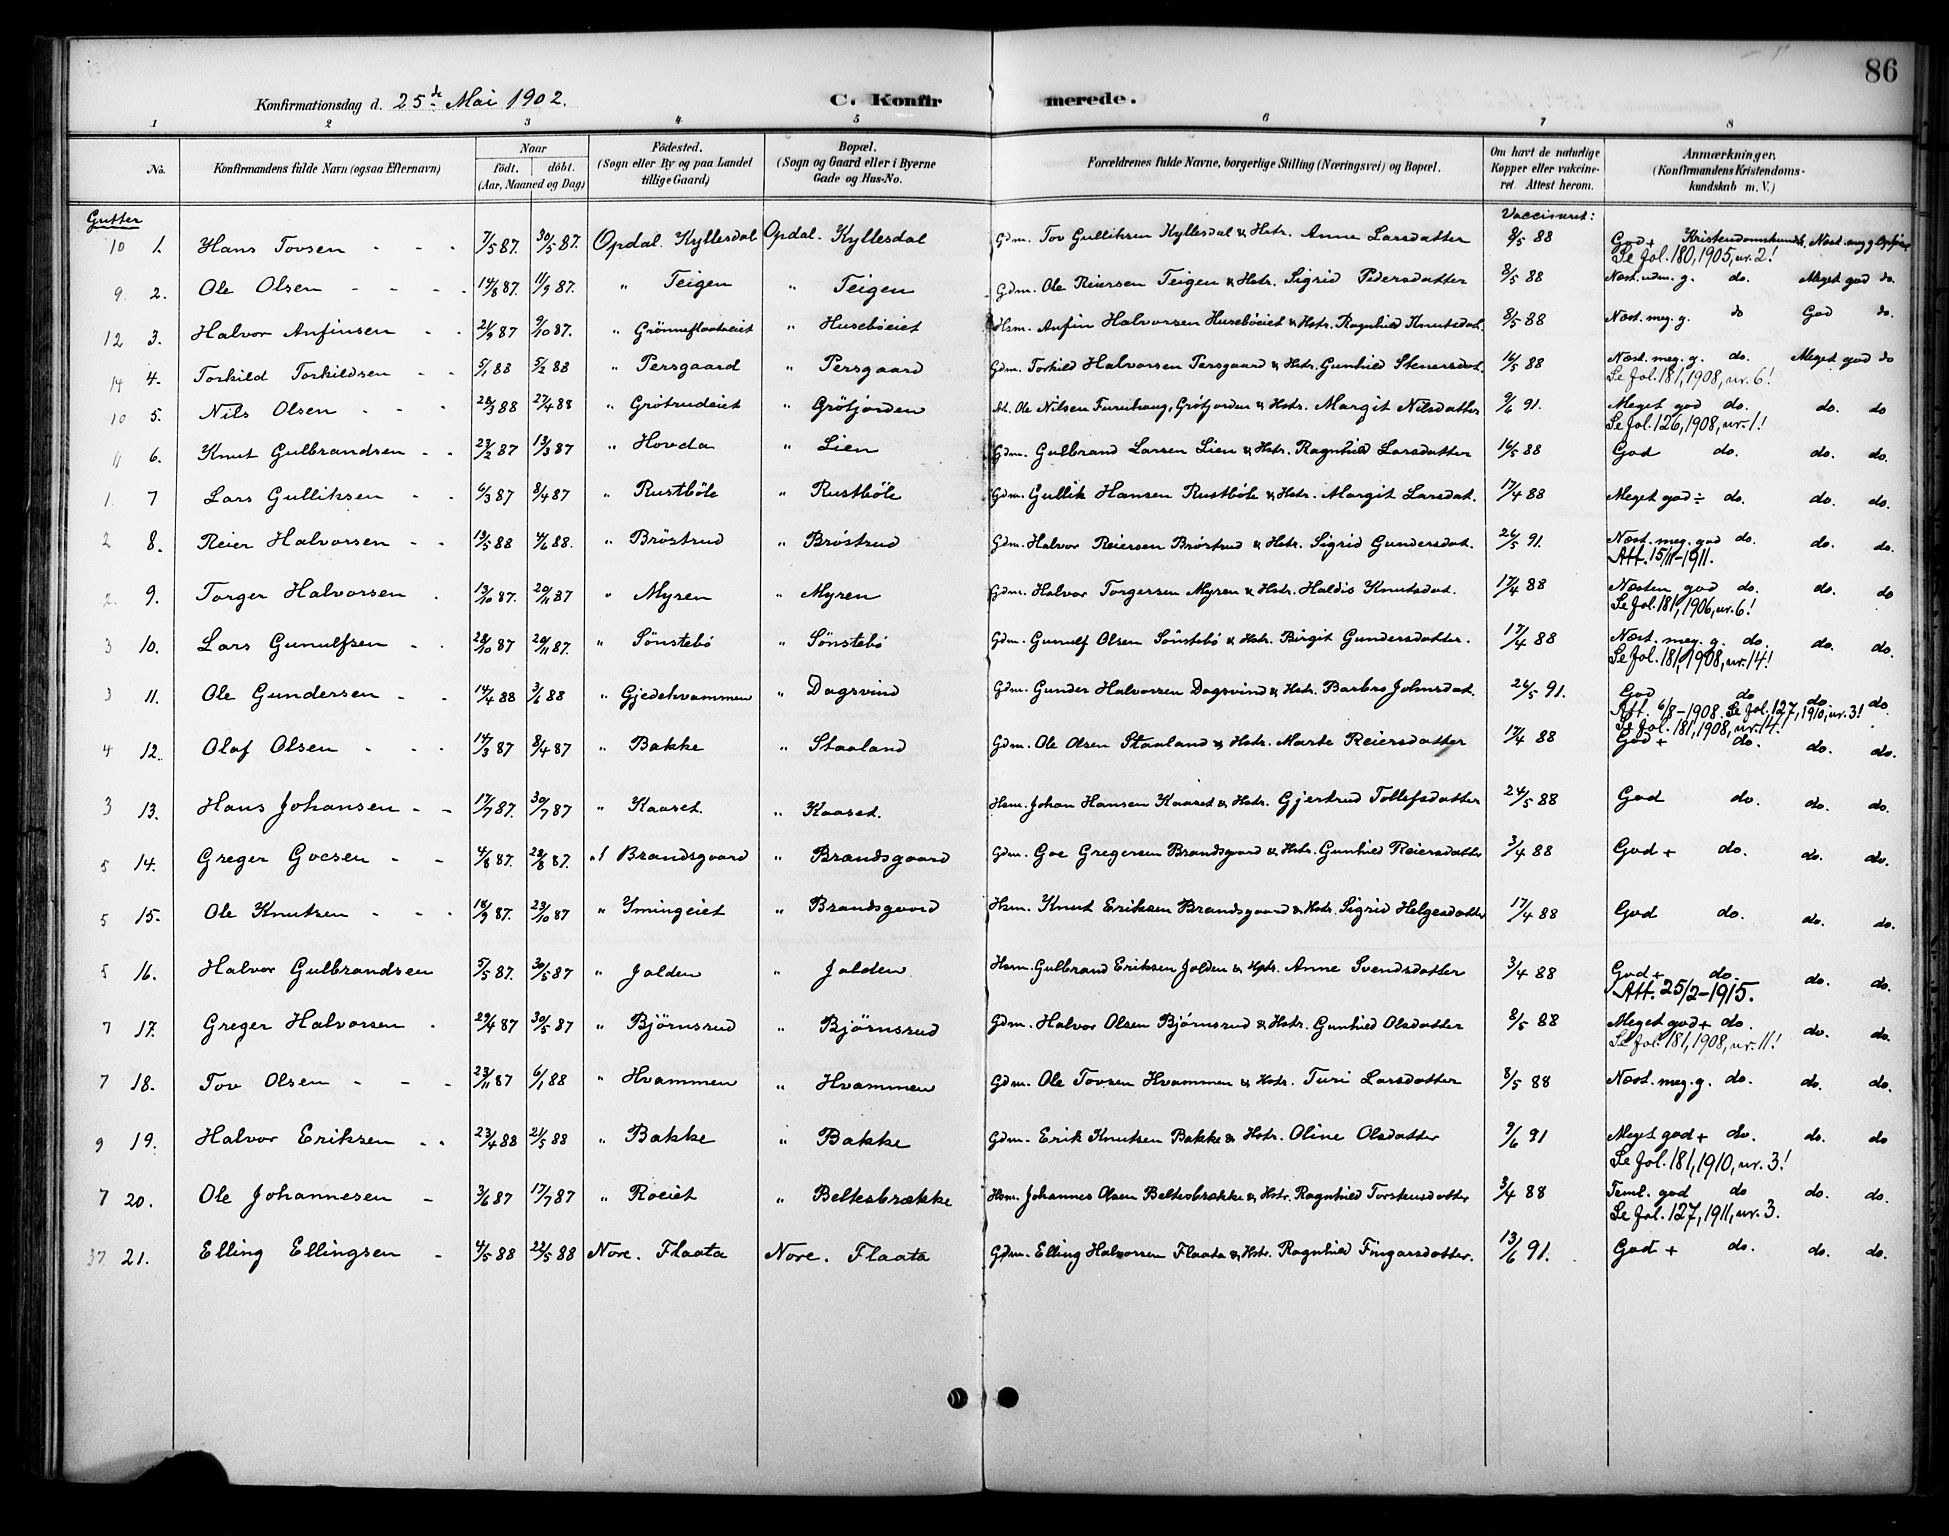 86
Konfirmationsdag d. 25de Mai 1902. C. Konfir merede.
1 2 3 4 5 6 7 8
No. Konfirmandens fulde Navn (ogsaa Efternavn) Naar født. døbt. (Aar, Maaned og Dag) Födested. (Sogn eller By og paa Landet tillige Gaard) Bopæl. (Sogn og Gaard eller i Byerne Gade og Hus-No. Forældrenes fulde Navne, borgerlige Stilling (Næringsvei) og Bopæl. Om havt de naturlige Kopper eller vakcineret. Attest herom. Anmærkninger. (Konfirmandens Kristendomskundskab m. V.)
Gutter Vaccineret:
10 1. Hans Tovsen 7/5 87. 30/5 87. Opdal. Kyllesdal Opdal. Kyllesdal Gdm. Tov Gulliksen Kyllesdal & Hstr. Anne Larsdatter 8/5 88 God + Kristendomskunds. Næst. meg. g.
Se Jol. 180, 1905, nr. 2!
9 2. Ole Olsen 14/8 87. 11/9 87. " Teigen " Teigen Gdm. Ole Reiersen Teigen & Hstr. Sigrid Pedersdatter 8/5 88 Næst. udm. g. do. Meget god do.
12 3. Halvor Anfinsen 21/9 87 9/10 87. " Grönneflaateiet " Husebøeiet Hsm. Anfin Halvorsen Husebøeiet & Hstr. Ragnhild Knutsdat. 8/5 88 Næst. meg. g. do God do.
14 4. Torkild Torkildsen 5/1 88 5/2 88 " Persgaard " Persgaard Gdm. Torkild Halvorsen Persgaard & Hstr. Gunhild Stenersdat. 16/5 88 Næst. meg. g. do. Meget god do
Se Jol. 181, 1908, nr. 6!
10 5. Nils Olsen 28/3 88 27/4 88 " Grötrudeiet " Grötjorden Ole Nilsen Furuhaug, Grötjorden & Hstr. Margit Nilsdatter 9/6 91. Meget god do. do. do
Se Jol. 126, 1908, nr. 1!
11 6. Knut Gulbrandsen 23/2 87 13/3 87 " Hovda " Lien Gdm. Gulbrand Larsen Lien & Hstr. Ragnhild Larsdatter 16/5 88 God do. do. do.
1. 7 Lars Gulliksen 6/3 87 8/4 87 " Rustbøle " Rustbøle Gdm. Gullik Hansen Rustbøle & Hstr. Margit Larsdat. 17/4 88 Meget god ÷ do. do. do.
2 8. Reier Halvorsen 13/5 88 4/6 88. " Bröstrud " Bröstrud Gdm. Halvor Reiersen Bröstrud & Hstr. Sigrid Gundersdat. 26/5 91. Næst. meg. god do. do. do.
Att. 15/11-1911.
2. 9. Torger Halvorsen 13/10 87. 20/11 87 " Myren " Myren Gdm. Halvor Torgersen Myren & Hstr. Haldis Knutsdat. 17/4 88 Næsten god do. do. do
Se Jol. 181, 1906, nr. 6!
3 10. Lars Gunulfsen 28/10 87 20/11 87. " Sönstebö " Sönstebö Gdm. Gunulf Olsen Sönstebö & Hstr. Birgit Gundersdatter. 17/4 88 Næst. meg. g. do. do. do.
Se Jol. 181, 1908, nr. 14!
3 11. Ole Gundersen 14/4 88 3/6 88 " Gjedehvammen " Dagsvind Gdm. Gunder Halvorsen Dagsvind & Hstr. Barbro Johnsdat. 26/5 91. God do do. do.
Att. 6/8-1908. Se Jol. 127, 1910, nr. 3!
Se Jol. 181, 1908, nr. 14!
4 12. Olaf Olsen 14/3 87 8/4 87 " Bakke " Staaland Gdm. Ole Olsen Staaland & Hstr. Marte Reiersdatter 17/4 88 God + do. do. do.
3 13. Hans Johansen 17/7 87. 30/7 87 " Kaaset. " Kaaset. Hsm. Johan Hansen Kaaset & Hstr. Gjertrud Tollefsdatter 24/5 88 God do. do. do.
5 14. Greger Goesen 4/8 87. 28/8 87. " Brandsgaard " Brandsgaard Gdm. Goe Gregersen Brandsgaard & Hstr. Gunhild Reiersdatter 3/4 88 God + do. do. do.
5 15. Ole Knutsen 18/9 87. 23/10 87 " Ymingeiet " Brandsgaard Hsm. Knut Eriksen Brandsgaard & Hstr. Sigrid Helgesdatter 17/4 88 God do. do. do.
5 16. Halvor Gulbrandsen 5/5 87. 30/5 87 " Jalden " Jalden Hsm. Gulbrand Eriksen Jalden & Hstr. Anne Svendsdatter 3/4 88 God + do. do. do.
Att. 25/2-1915.
7 17. Greger Halvorsen 29/4 87 30/5 87 " Björnsrud " Björnsrud Gdm. Halvor Olsen Björnsrud & Hstr. Gunhild Olsdatter 8/5 88 Meget god + do. do. do.
Se Jol. 181, 1908, nr. 11!
7 18. Tov Olsen 23/11 87 6/1 88 " Hvammen " Hvammen Gdm. Ole Tovsen Hvammen & Hstr. Turi Larsdatter 8/5 88 Næst. meg. g. do. do. do.
9 19. Halvor Eriksen 23/4 88 21/5 88 " Bakke " Bakke Gdm. Erik Knutsen Bakke & Hstr. Oline Olsdatter 9/6 91 Meget god + do. do. do
Se Jol. 181, 1910, nr. 3!
7 20. Ole Johannesen 3/6 87 17/7 87 " Roeiet " Beltesbrække Hsm. Johannes Olsen Beltesbrække & Hstr. Ragnhild Torstensdatter 3/4 88 Teml. god do do. do.
Se Jol. 127, 1911, nr. 3.
37 21. Elling Ellingsen 4/5 88 22/5 88 Nore. Flaata Nore. Flaata Gdm. Elling Halvorsen Flaata & Hstr. Ragnhild Fingarsdatter. 13/6 91. God + do. do. do.